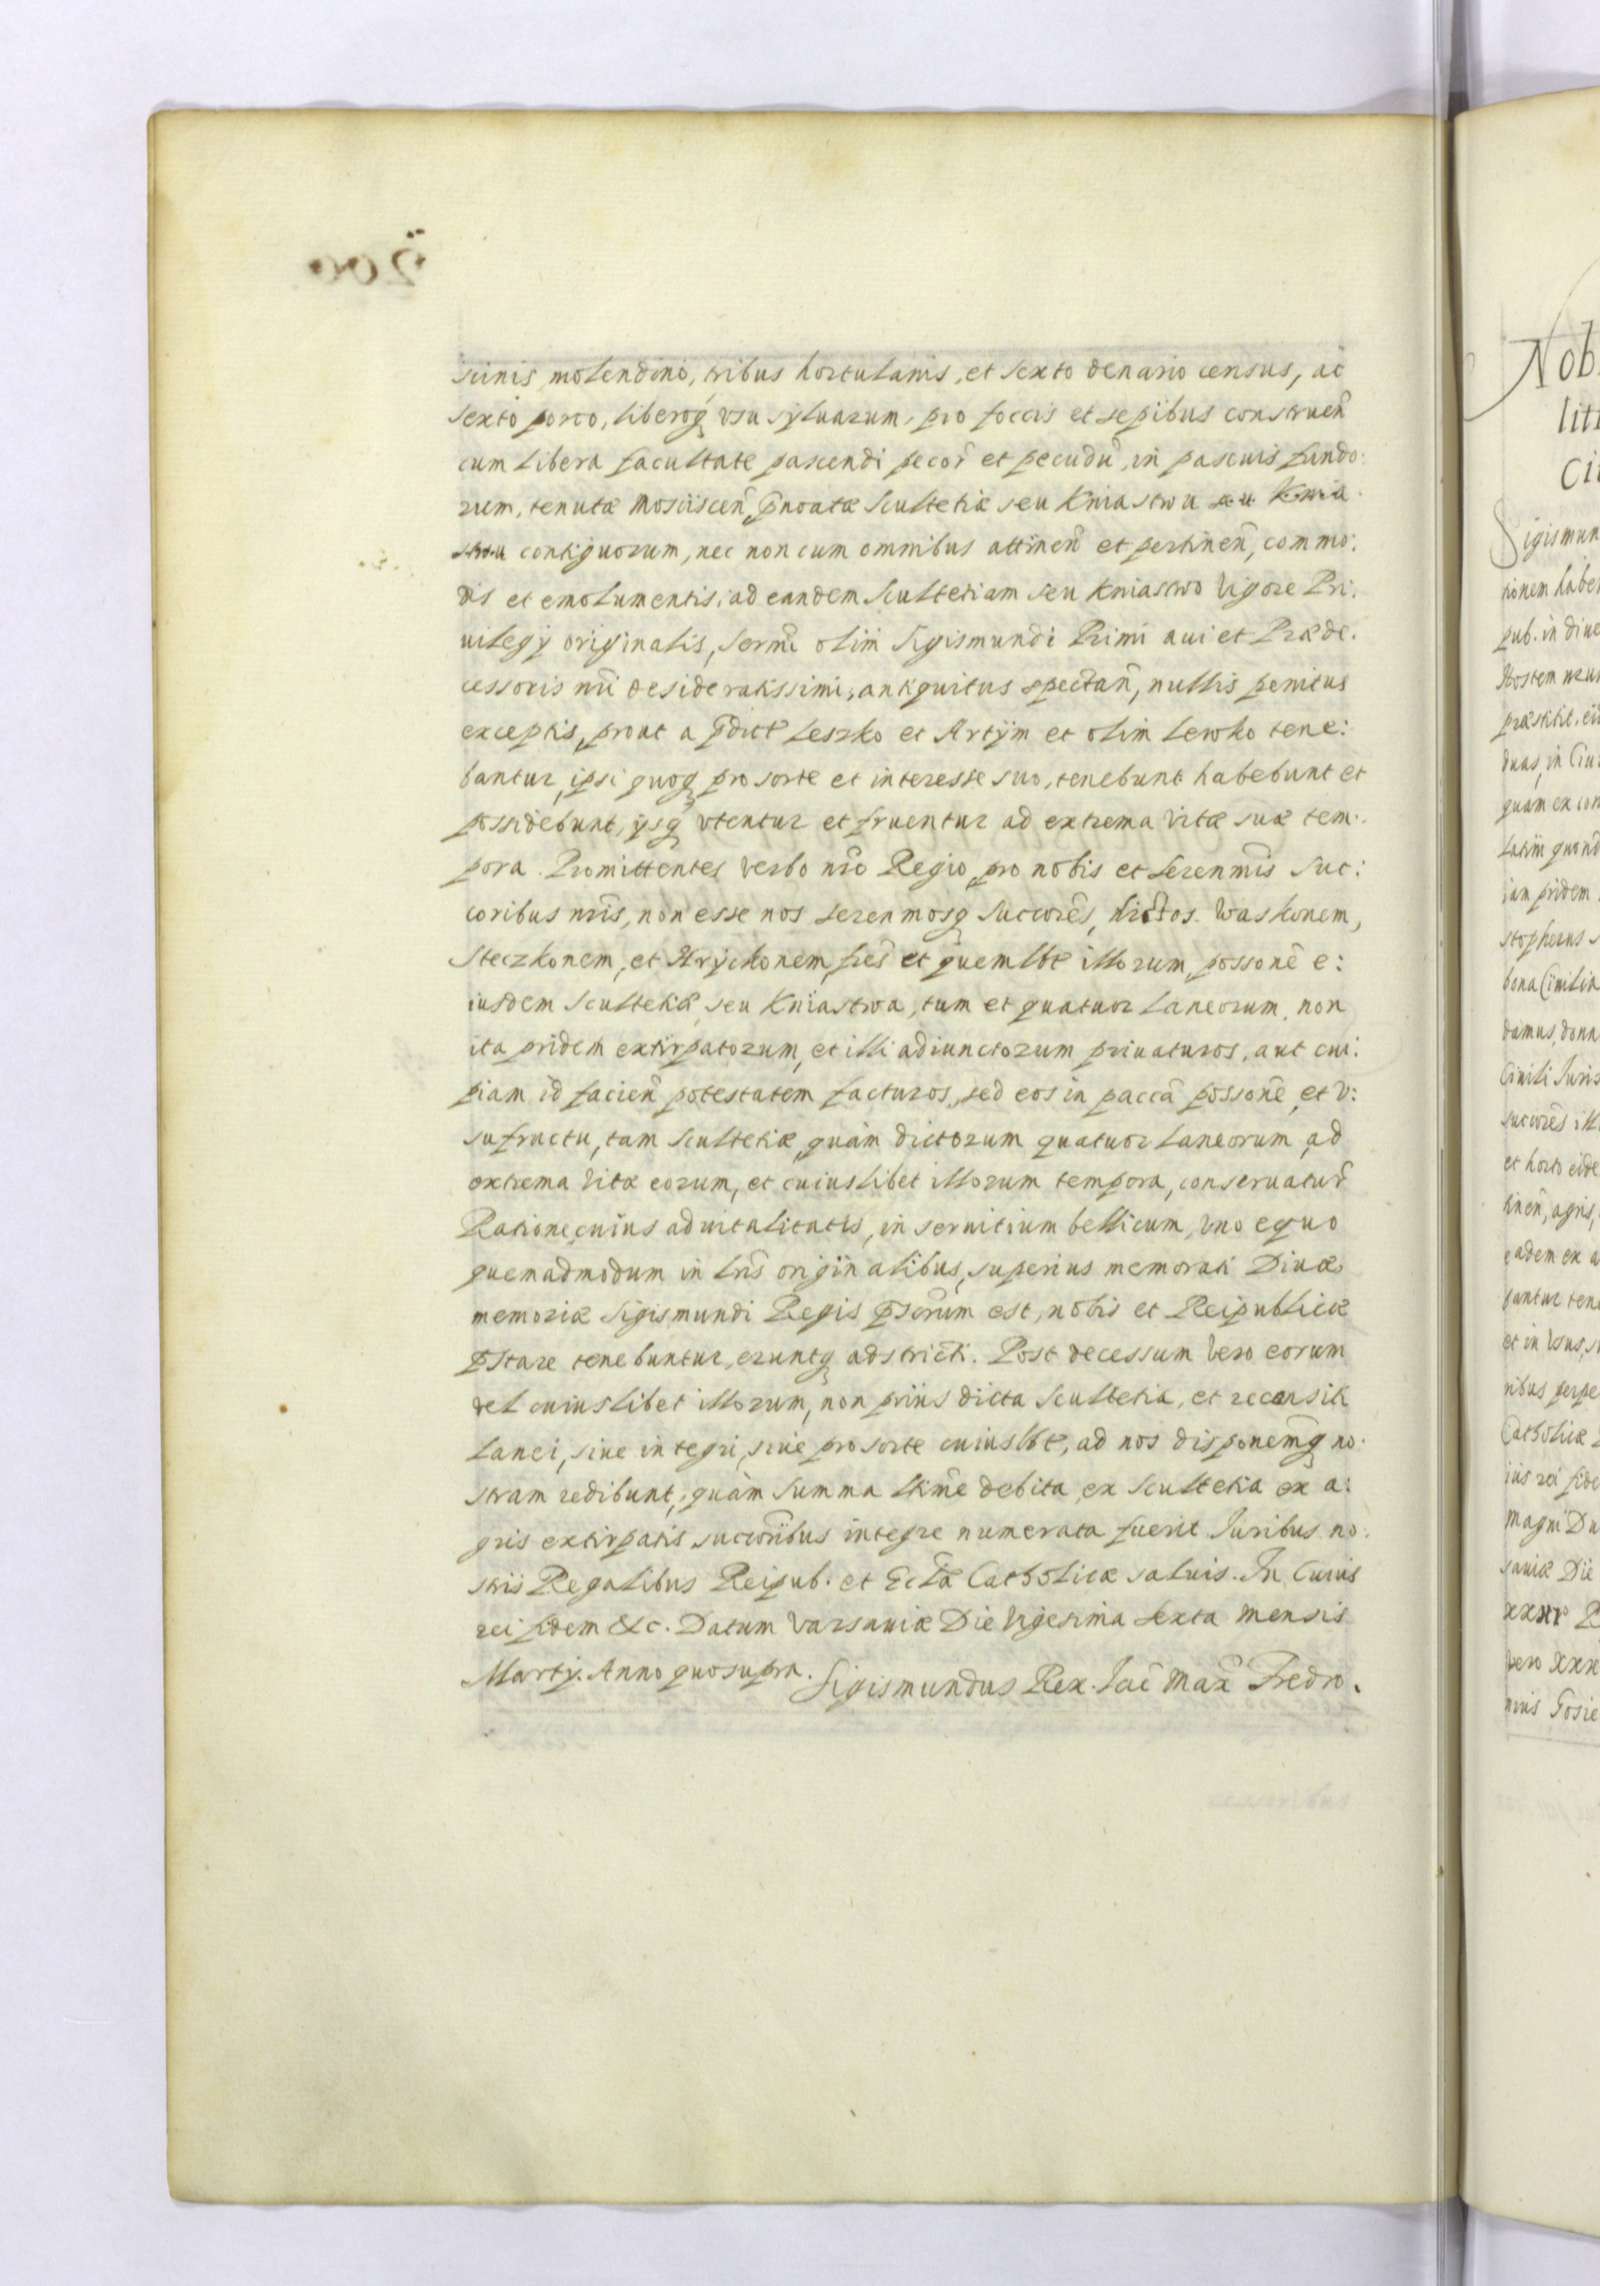 scinis, molendino, tribus hortulanis, et sexto denario census, ac
sexto porco, liberoq₃ vsu syluarum, pro foccis et sepibus construen̄
cum libera facultate pascendi pecor̄ et pecudū, in pascuis fundo:
rum, tenutæ Mosciscen̄, p̄noatæ Scultetiæ seu Kniastwa seu Knia
stwu contiguorum, nec non cum omnibus attinen̄ et pertinen̄, commo:
dis et emolumentis, ad eandem Scultetiam seu Kniastwo Vigore Pri:
uilegÿ originalis, Sermi olim Sigismundi Primi aui et Præde:
cessoris nr̄i desideratissimi, antiquitus spectan̄, nullis penitus
exceptis, prout a p̄dict Leszko et Artÿm et olim Lewko tene:
bantur, ipsi quoq₃ pro sorte et interesse suo, tenebunt habebunt et
possidebunt, ÿsq₃ vtentur et fruentur ad extrema Vitæ suæ tem:
pora. Promittentes Verbo nr̄o Regio, pro nobis et Serenmis Suc:
coribus nr̄is, non esse nos Serenmosq₃ Succores, dictos. Waskonem,
Steczkonem, et Hryckonem, fr̄es et quemlbt illorum, possone e:
iusdem Scultetiæ, seu Kniastwa, tum et quatuor Laneorum, non
ita pridem extirpatorum, et illi adiunctorum priuaturos, aut cui:
piam id facien̄ potestatem facturos, sed eos in paccā possone, et V:
sufructu, tam Scultetiæ, quàm dictorum quatuor Laneorum, ad
extrema Vitæ eorum, et cuiuslibet illorum tempora, conseruatur̄
Ratione, cuius aduitalitatis, in seruitium bellicum, Vno equo
quemadmodum in Lr̄is originalibus, superius memorati Diuæ
memoriæ Sigismundi Regis p̄scr̄um est, nobis et Reipublicæ
p̄stare tenebuntur, eruntq₃ adstricti. Post decessum Vero eorum
vel cuiuslibet illorum, non priùs dicta Scultetia, et recensiti
Lanei, siue integri, siue pro sorte cuiuslbt, ad nos disponemq₃ no:
stram redibunt, quàm summa ltime debita, ex Scultetia ex a:
gris extirpatis succoribus integre numerata fuerit. Iuribus no:
stris Regalibus Reipub. et Eccl̄æ Catholicæ saluis. In Cuius
rei fidem &c. Datum Varsauiæ Die Vigesima Sexta Mensis
Martÿ. Anno quo supra. Sigismundus Rex. Iac̄ Max̄ Fredro.
Nob
litt
Ci
Sigismun
pub. in diue
Hostem
duas, in Ciui
quam ex con
iam pridem
stopherus
bona Ciuilia
damus, dona
Ciuili Iuris
succores ill
et horto
agris,
eadem ex a
bantur tene
et in Vsus, s
ribus perpe
Catholicæ
ius rei fide
Magni Du
sauiæ Die
vero xxx